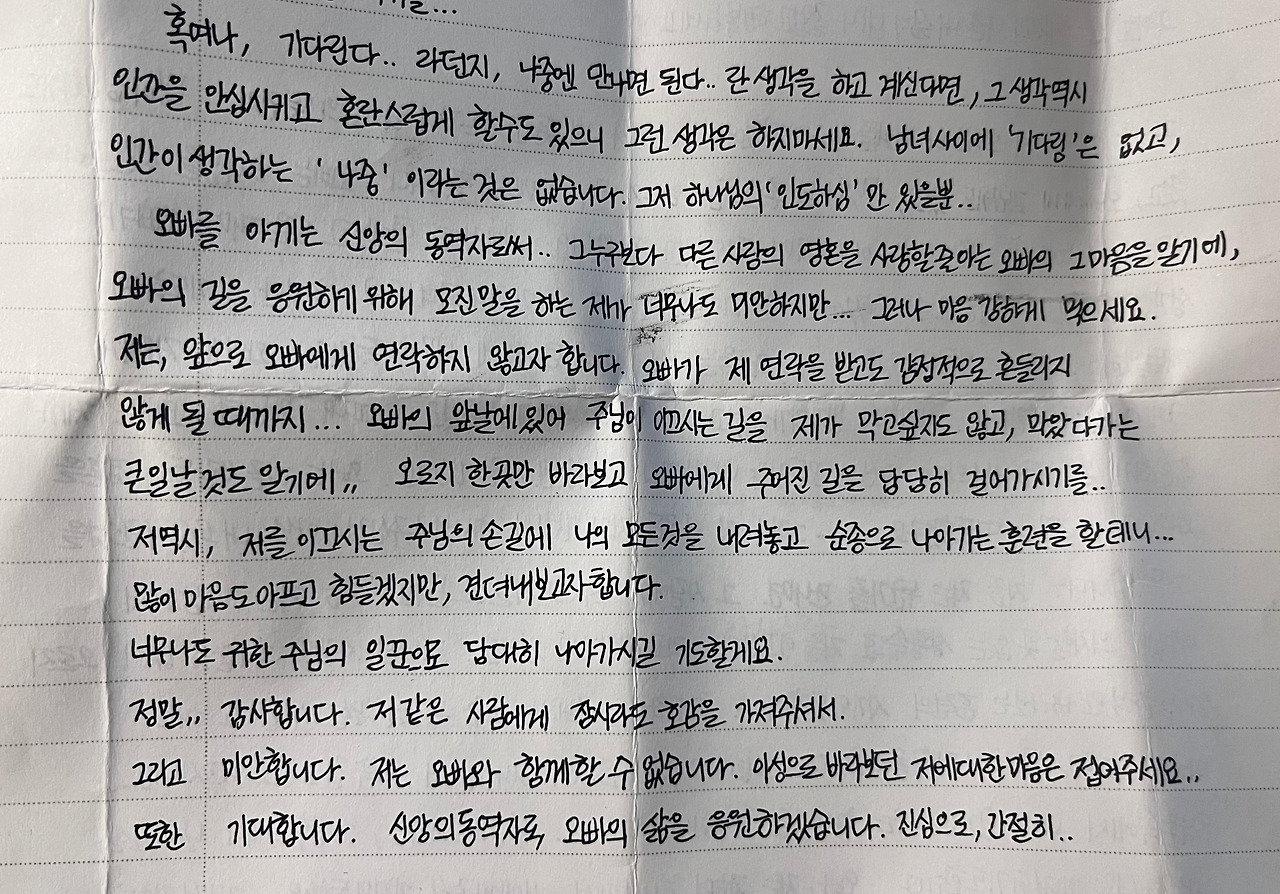 혹여나, 기다린다.. 라던지, 나중엔 만나면 된다.. 란 생각을 하고 계신다면, 그 생각역시
인간을 안심시키고 혼란스럽게 할수도 있으니 그런 생각은 하지마세요. 남녀사이에 '기다림'은 없고,
인간이 생각하는 '나중' 이라는 것은 없습니다. 그저 하나님의 '인도하심' 만 있을뿐..
오빠를 아끼는 신앙의 동역자로써.. 그누구보다 다른 사람의 영혼을 사랑할줄아는 오빠의 그마음을 알기에,
오빠의 길을 응원하기 위해 모진말을 하는 제가 너무나도 미안하지만... 그러나 마음 강하게 먹으세요.
저는, 앞으로 오빠에게 연락하지 않고자 합니다. 오빠가 제 연락을 받고도 감정적으로 흔들리지
않게 될 때까지... 오빠의 앞날에 있어 주님이 이끄시는 길을 제가 막고싶지도 않고, 막았다가는
큰일날 것도 알기에,, 오로지 한곳만 바라보고 오빠에게 주어진 길을 담담히 걸어가시기를..
저역시, 저를 이끄시는 주님의 손길에 나의 모든것을 내려놓고 순종으로 나아가는 훈련을 할테니...
많이 마음도아프고 힘들겠지만, 견뎌내보고자합니다.
너무나도 귀한 주님의 일꾼으로 담대히 나아가시길 기도할게요.
정말,, 감사합니다. 저같은 사람에게 잠시라도 호감을 가져주셔서.
그리고 미안합니다. 저는 오빠와 함께할 수 없습니다. 이성으로 바라보던 저에대한마음은 접어주세요..
또한 기대합니다. 신앙의동역자로, 오빠의 삶을 응원하겠습니다. 진심으로, 간절히..